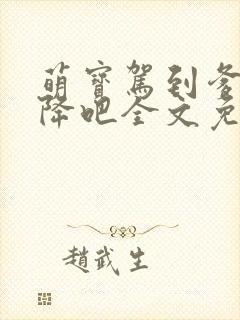 萌寶駕到爹
降吧全文免
趙武生